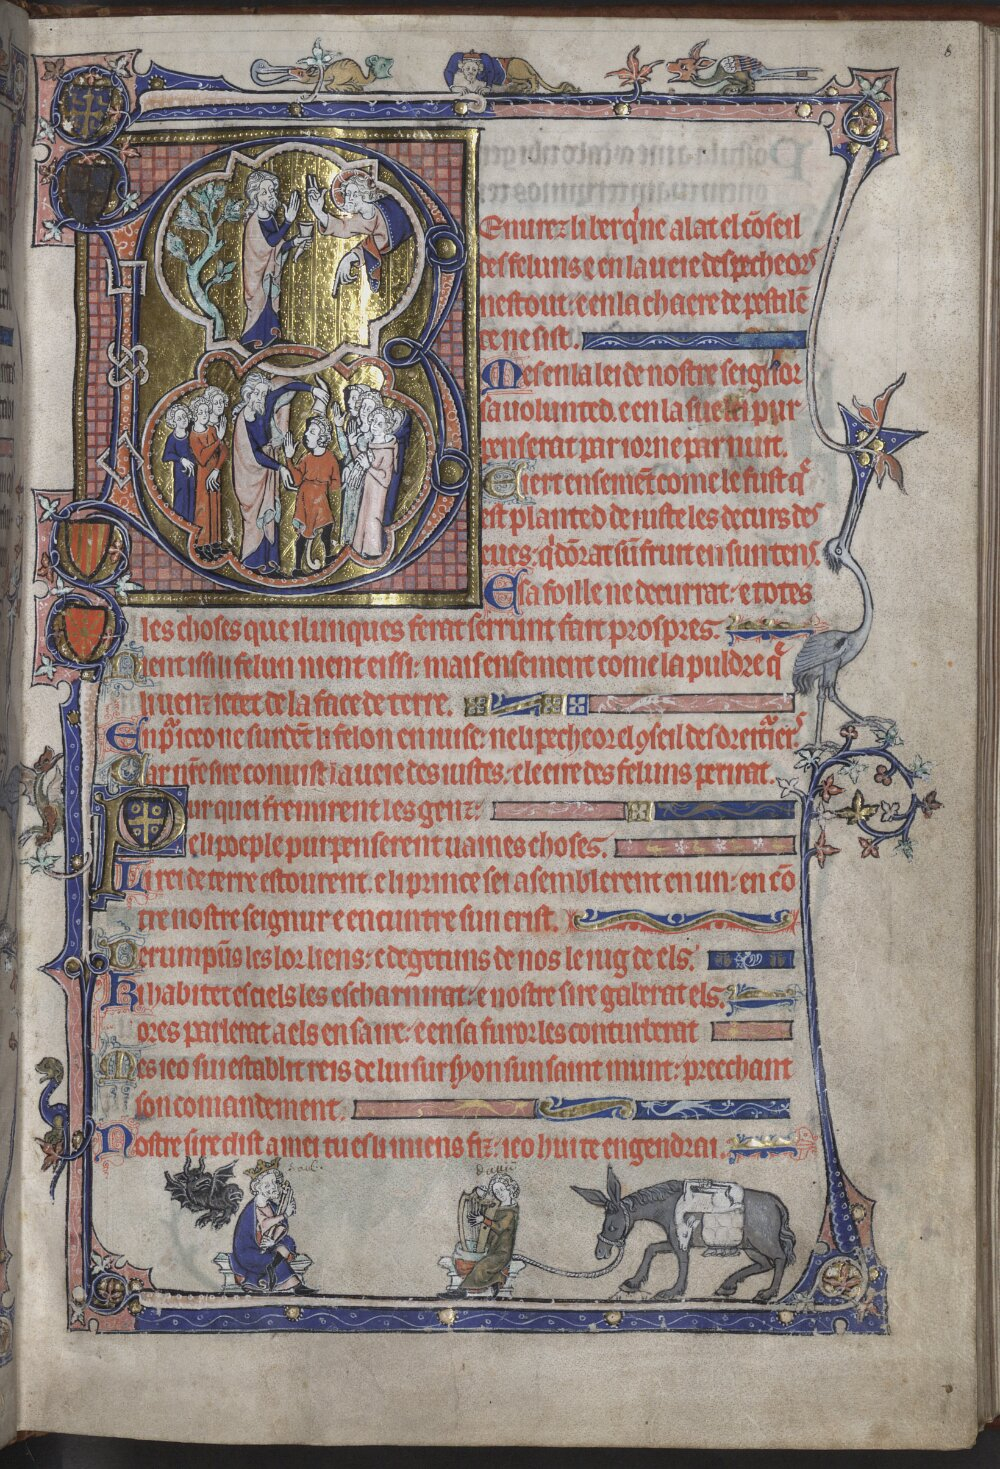 8
Beneurez li bers q̄ ne alat el cōseil
des feluns e en la ueie des pecheors
ne stout: e en la chaere de pestilē
ce ne sist.
Mes en la lei de nostre seignor
sa uolunted. e en la sue lei pur
penserat par iorn e par nuit.
E iert ensemēt come le fust q̄
est planted de iuste les decurs des
eues: q̄ dōrat sun fruit en sun tens.
E sa foille ne decurrat: e totes
les choses que il unques ferat serrunt fait prospres.
Nient issi li felun nient eissi: mais ensement come la puldre q̄
li uenz ietet de la face de terre.
Enp̄ iceo ne surdēt li felon en iuise: ne li pecheor el ɔseil des dreit͛ers
Car n̄re sire conuist la ueie des iustes: e le eire des feluns perirat.
Purquei fremirent les genz:
e li poeple purpenserent uaines choses.
Li rei de terre estourent. e li prince sei asemblerent en un: en cō
tre nostre seignur e encuntre sun crist.
Derumpūs les lor liens: e degetuns de nos le iug de els.
Ki habitet es ciels les escharnirat: e nostre sire gaberat els.
ores parlerat a els en sa ire: e en sa furor les conturberat
Mes ieo sui establit reis de lui sur syon sun saint munt: preechant
son comandement.
Nostre sire dist a mei tu es li miens fiz: ieo hui te engendrai.
saul:
dauid